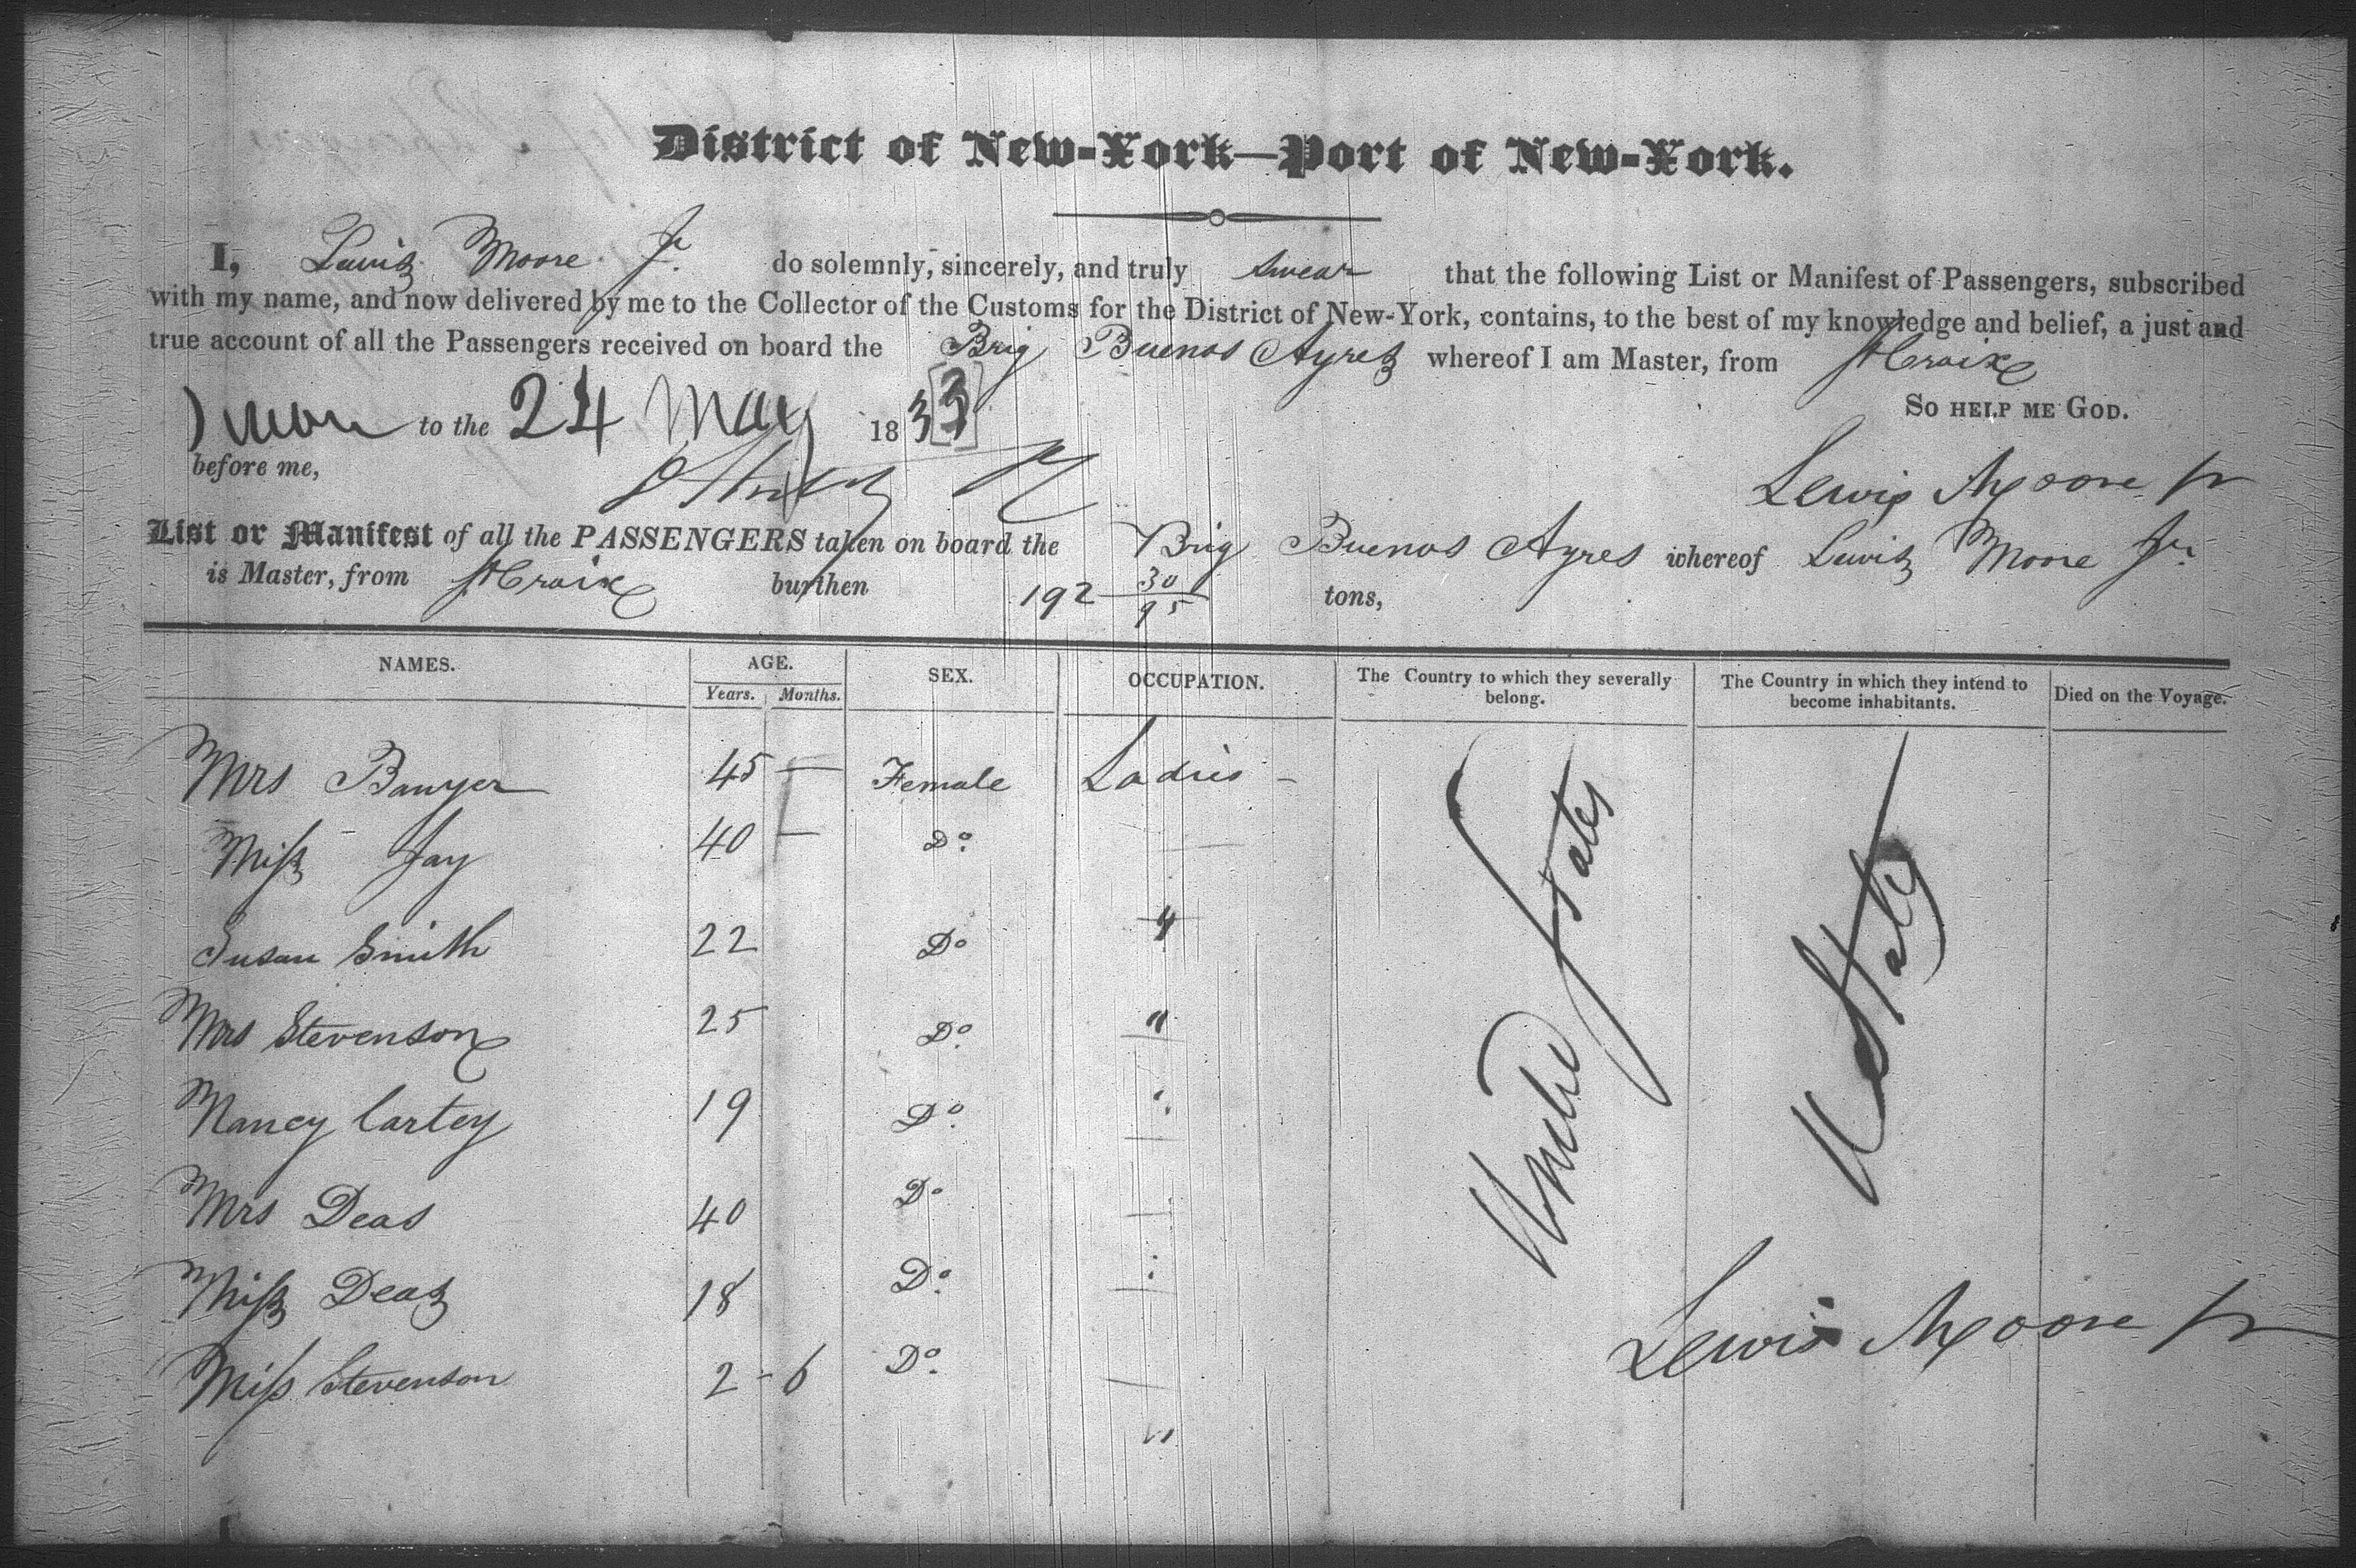 District of New-York—Port of New-York.
I, Lewis Moore Jr. do solemnly, sincerely, and truly swear that the following List or Manifest of Passengers, subscribed
with my name, and now delivered by me to the Collector of the Customs for the District of New-York, contains, to the best of my knowledge and belief, a just and
true account of all the Passengers received on board the Brig Buenos Ayres whereof I am Master, from St Croix
So help me God.
to the 24 May 1833
before me,
Lewis Moore Jr
List or Manifest of all the PASSENGERS taken on board the Brig Buenos Ayres whereof Lewis Moore Jr.
is Master, from St Croix burthen 192 30/95 tons,
NAMES. AGE. Years. Months. SEX. OCCUPATION. The Country to which they severally belong. The Country in which they intend to become inhabitants. Died on the Voyage.
Mrs Banyer 45 — Female Ladies -
Miss Jay 40 — Do.
Susan Smith 22 Do "
Mrs Stevenson 25 Do. "
Nancy Cartey 19 Do. "
Mrs Deas 40 Do.
Miss Deas 18 Do.
Miss Stevenson 2 - 6 Do.
"
United States
U States
Lewis Moore Jr